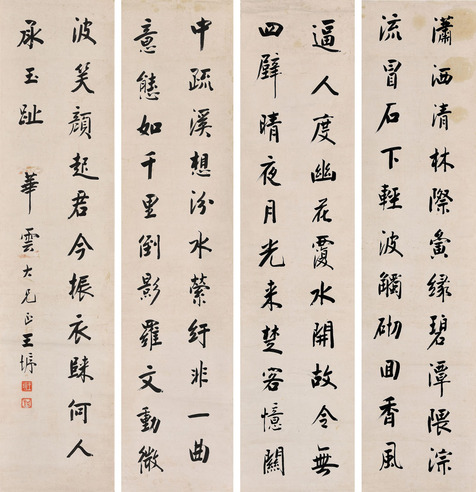 瀟洒清林際夤緣碧潭隈淙
流冒石下輕波觸砌回香風
逼人度幽花覆水開故令無
四壁晴夜月光來楚客憶關
中疏溪想汾水縈紆非一曲
意態如千里倒影羅文動微
波笑顏起君今振衣睐何人
承玉趾
華雲大兄正 王塀